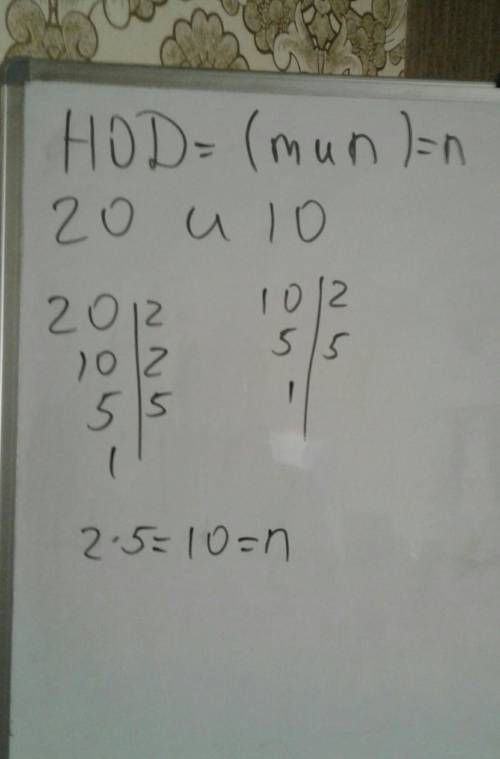 НОD= (m и n)=n
20 и 10
20|2 10|2
10|2 5|5
5|5 1
1
2·5=10=n